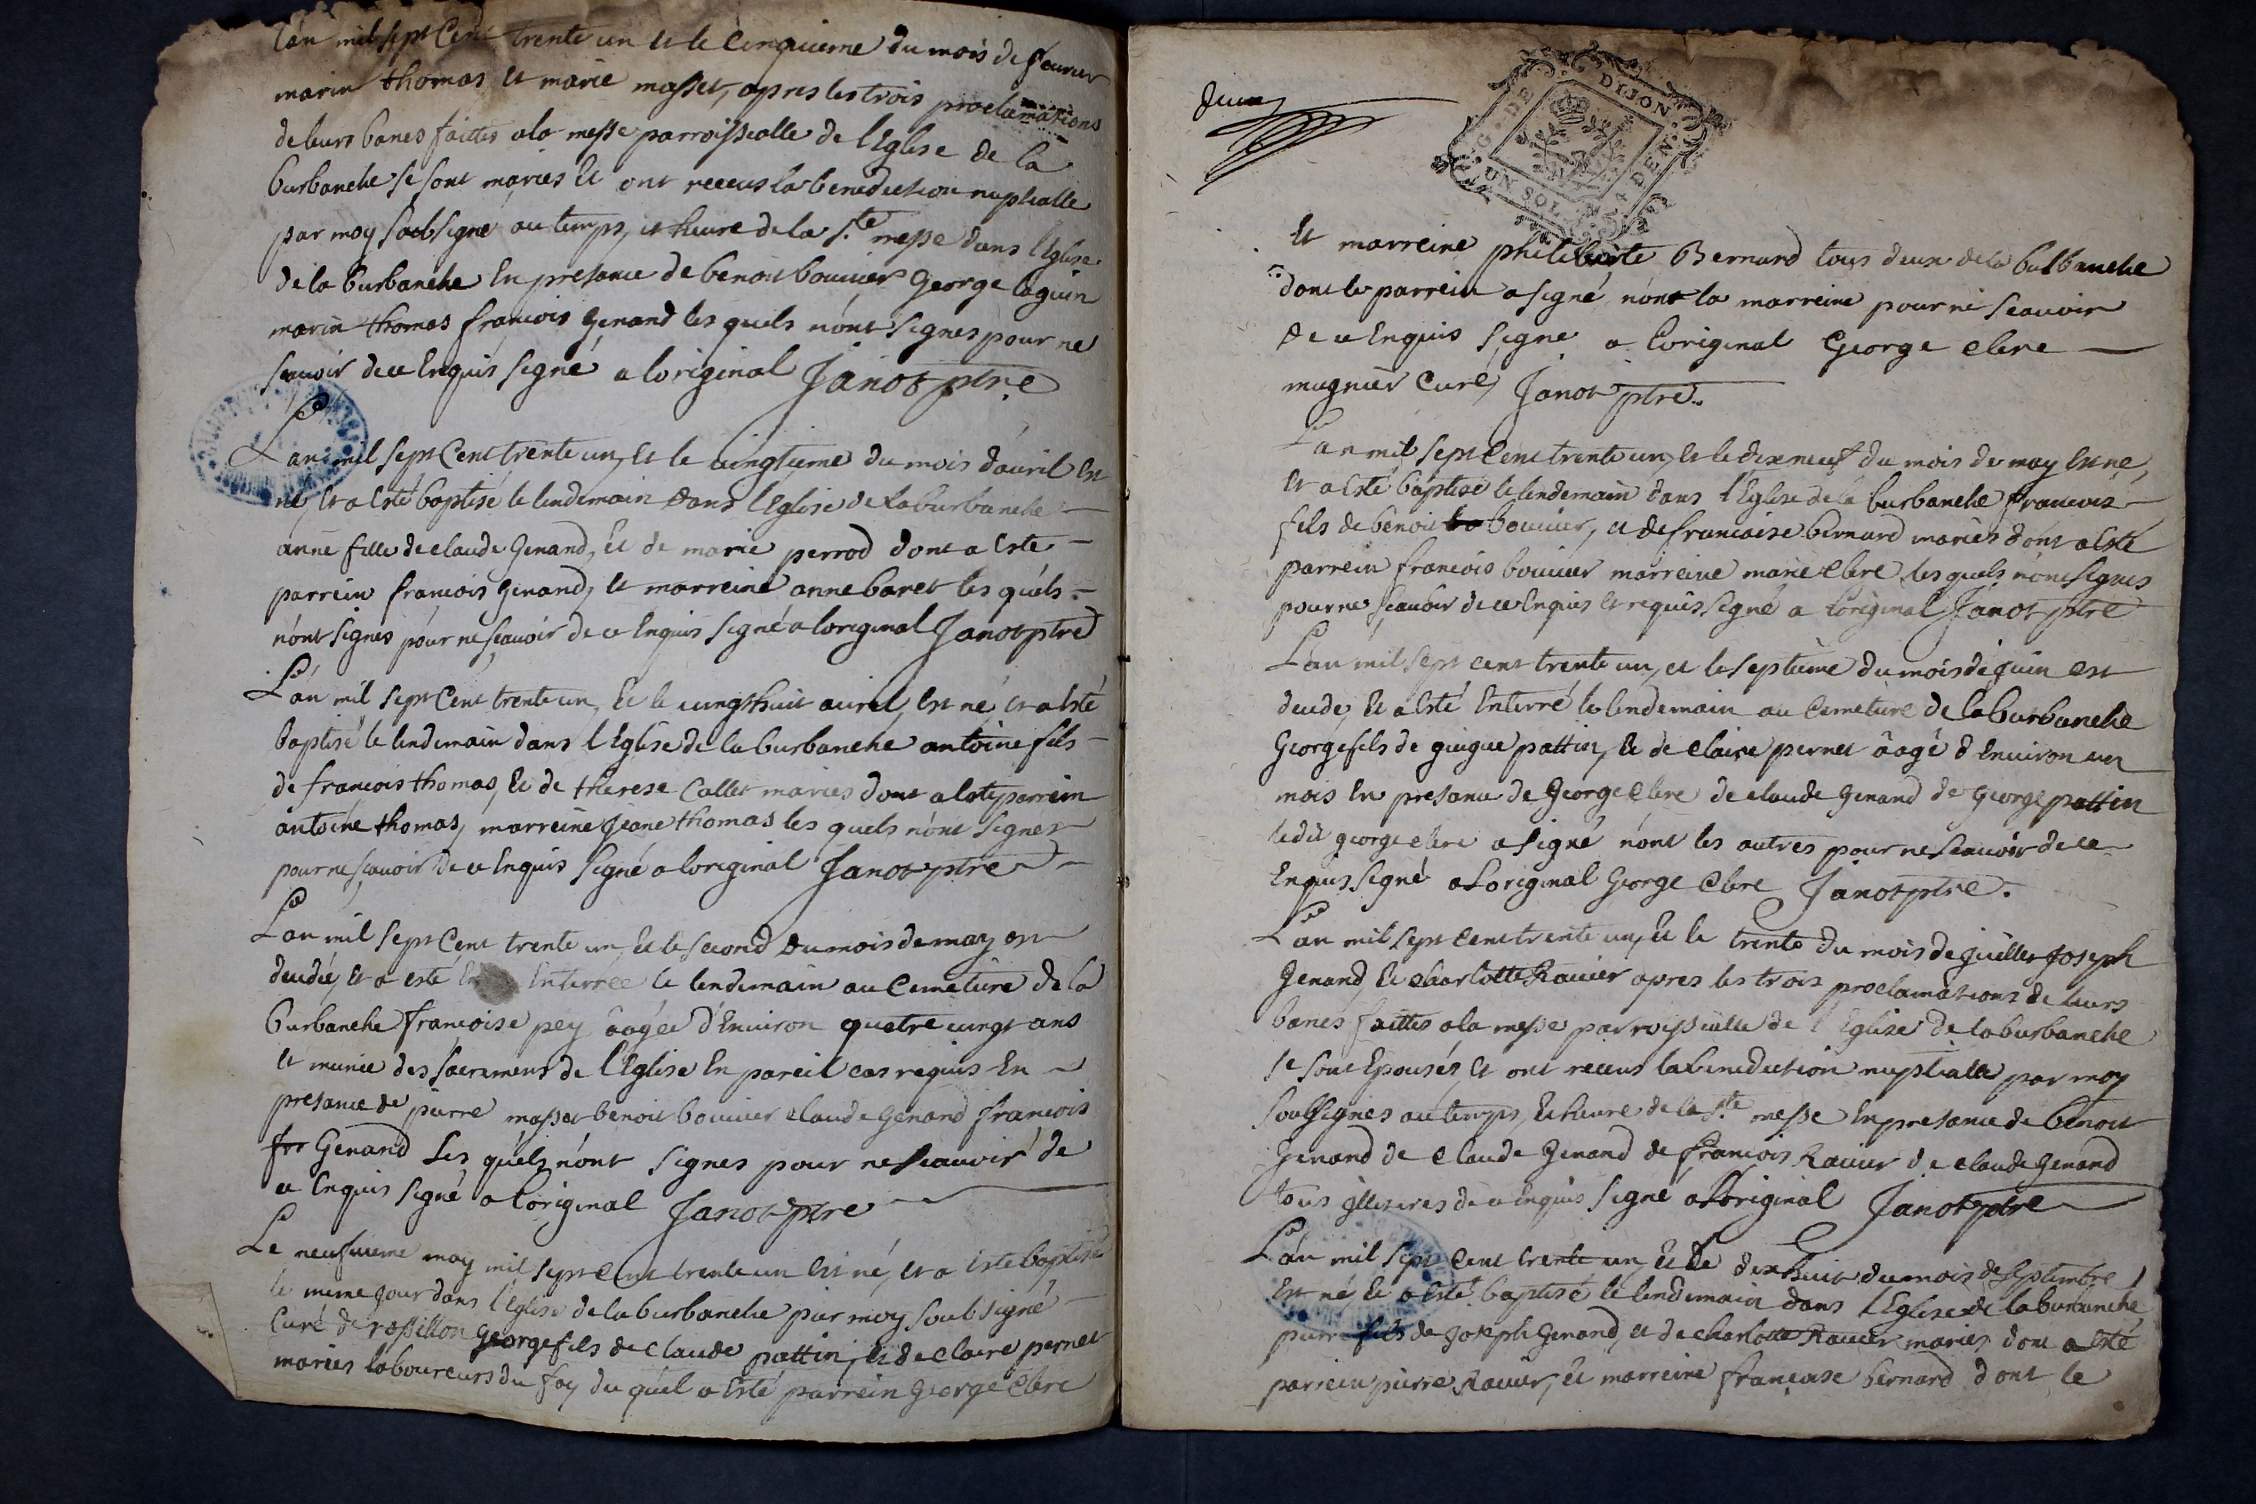 L'an mil sept Cent trente un et le Cinquieme du mois de fevrier
marin thomas et marie masset, apres les trois proclamations
de leurs banes faittes a la messe parroissialle de l'Eglise de la
burbanche se sont mariés et ont receus la benediction nuptialle
par moy soubsigné au temps, et heure de la Ste messe dans l'Eglise
de la burbanche En presance de benoit bouvier George
marin thomas francois Genand les quels n'ont signes pour ne
scavoir de ce Enquis signé a loriginal Janot ptre
L'an mil sept Cent trente un, Et le vingtieme du mois d'avril Est
né, Et a Esté baptisé le lendemain dans l'Eglise de la burbanche
anne fille de claude Genand, Et de marie perrod dont a Esté
parrein francois Genand, Et marreine anne baret les quels
n'ont signes pour ne scavoir de ce Enquis signé a loriginal Janot ptre
L'an mil sept Cent trente un, Et le vingt huit avril, Est né, Et a Esté
baptisé le lendemain dans l'Eglise de la burbanche antoine fils
de francois thomas, Et de therese Callet mariés dont a Esté parrein
antoine thomas, marreine Jeane thomas les quels n'ont signes
pour ne scavoir de ce Enquis signé a loriginal Janot ptre
L'an mil sept Cent trente un, Et le second du mois de may est
decedée, Et a esté Enterrée le lendemain au Cemetiere de la
burbanche francoise pey âagée d'Environ quatre vingt ans
et munie des sacremens de l'Eglise En pareil cas requis En
presance de pierre masset benoit bouvier claude Genand francois
fra Genand Les quels n'ont signes pour ne scavoir de
ce Enquis signé a loriginal Janot ptre
Le neufvieme may mil sept Cent trente un Est né, et a Esté baptisé
le meme jour dans l'Eglise de la burbanche par moy soubsigné
Curé de rossillon George fils de claude pattin, Et de claire pernet
mariés laboureurs du du quel a Esté parrein George Clerc
DIJON
G. DE
DEN.
UN SOL
Et marreine philiberte Bernard tous deux de la bulbanche
dont le parrein a signé, non la marreine pour ne scavoir
de ce Enquis signé a l'original George Clerc
mugnier curé, Janot ptre
L'an mil sept Cent trente un, Et le dix neuf du mois de may Est né,
Et a Esté baptisé le lendemain dans l'Eglise de la burbanche francois
fils de benoit bouvier, et de francoise bernard mariés dont a Esté
parrein francois bouvier marreine marie clerc les quels n'ont signes
pour ne scavoir de ce Enquis Et requis signé a l'original Janot ptre
L'an mil sept cent trente un, et le septieme du mois de juin est
decede, Et a Esté Enterré le lendemain au Cemetiere de la burbanche
George fils de guigue pattin, Et de claire pernet âagé d'Environ un
mois En presance de George Clerc de claude Genand de George pattin
ledit george clerc a signé non les autres pour ne scavoir de ce
Enquis signé a Loriginal George Clerc Janot ptre.
L'an mil sept cent trente un, Et le trente du mois de juillet Joseph
Genand, Et charlotte Ravier apres les trois proclamations de leurs
banes faittes a la messe parroissialle de l'Eglise de la burbanche
se sont Epousés, Et ont receus la benediction nuptialle par moy
soubsignés au temps, Et heure de la Ste messe En presance de benoit
Genand de claude Genand de francois Ravier de claude Genand
tous illiteres de ce enquis signé a Loriginal Janot ptre
L'an mil sept Cent trente un, Et le dixhuit du mois de septembre
Est né Et a Esté baptisé le lendemain dans l'Eglise de la burbanche
pierre fils de Joseph Genand, et de charlotte Ravier mariés dont a Esté
parrein pierre Ravier, Et marreine francoise bernard dont le